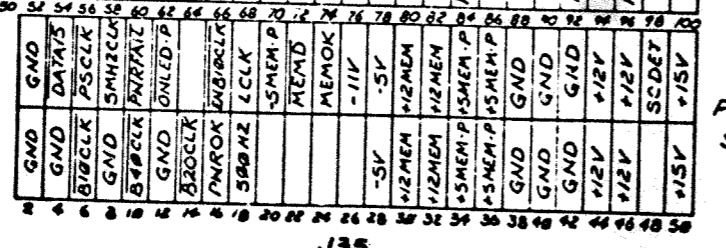 50 52 54 56 58 60 62 64 66 68 70 72 74 76 78 80 82 84 86 88 90 92 94 96 98 100
GND DATA15 PSCLK 5MHZCLK PWRFAIL ONLED·P ENB10CLK LCLK -5MEM·P MEMD MEMOK -11V -5V +12MEM +12MEM +5MEM·P +5MEM·P GND GND GND +12V +12V SCDET +15V
GND GND B10CLK GND B40CLK GND B20CLK PWROK 500HZ -5V +12MEM +12MEM +5MEM·P +5MEM·P GND GND GND +12V +12V +15V
2 4 6 8 10 12 14 16 18 20 22 24 26 28 30 32 34 36 38 40 42 44 46 48 50
.125